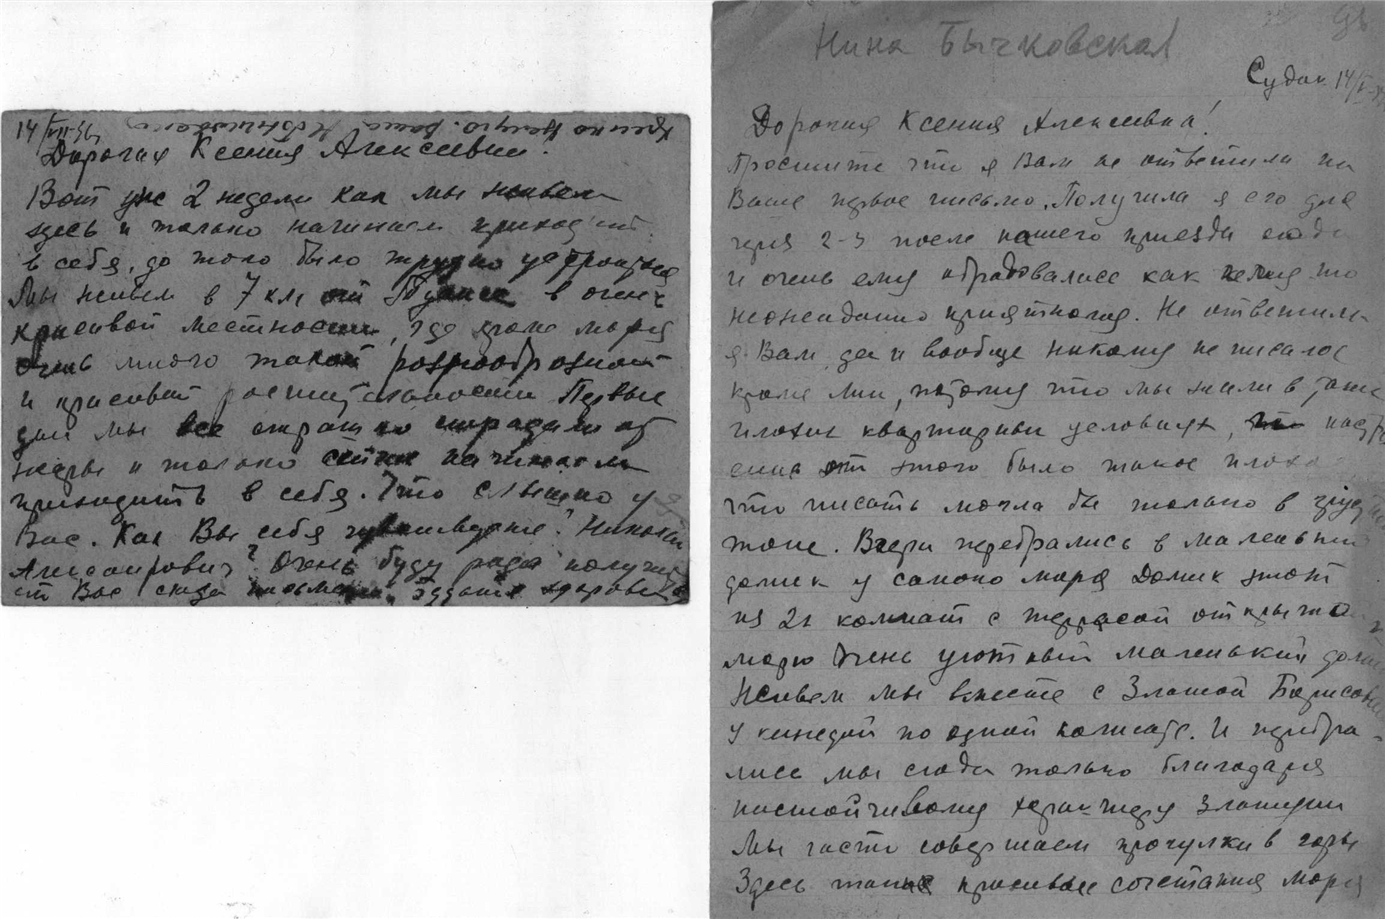 14/VII-36
Крепко целую. Ваша Н Бычковская
Дорогая Ксения Алексеевна!
Вот уже 2 недели как мы живем
здесь и только начинаем приходить
в себя, до того было трудно устроиться
Мы живем в 7 км от в очень
красивой местности, где кроме моря
очень много такой разнообразной
и красивой растительности Первые
дни мы все страшно страдали от
жары и только сейчас начинаем
приходить в себя. Что слышно у
Вас. Как Вы себя чувствуете? Николай
Александрович? Очень буду рада получить
от Вас сюда письмо. Будьте здоровы
Нина Бычковская
Судак 14/
Дорогая Ксения Алексеевна!
Простите что я Вам не ответила на
Ваше первое письмо. Получила я его дня
через 2-3 после нашего приезда сюда
и очень ему обрадовалась как чему то
неожиданно приятному. Не ответила
я Вам, да и вообще никому не писала
кроме Лии, потому что мы жили в таких
плохих квартирных условиях, настро
ение от этого было такое плохое
что писать могла бы только в грустном
тоне. Вчера перебрались в маленький
домик у самого моря Домик этот
из 2х комнат с террасой открытой к
морю Очень уютный маленький домик
Живем мы вместе с Златой Борисовной
у каждой по одной комнате. И перебра-
лись мы сюда только благодаря
настойчивому характеру Златуси
Мы часто совершаем прогулки в горы
Здесь такие красивые сочетания моря